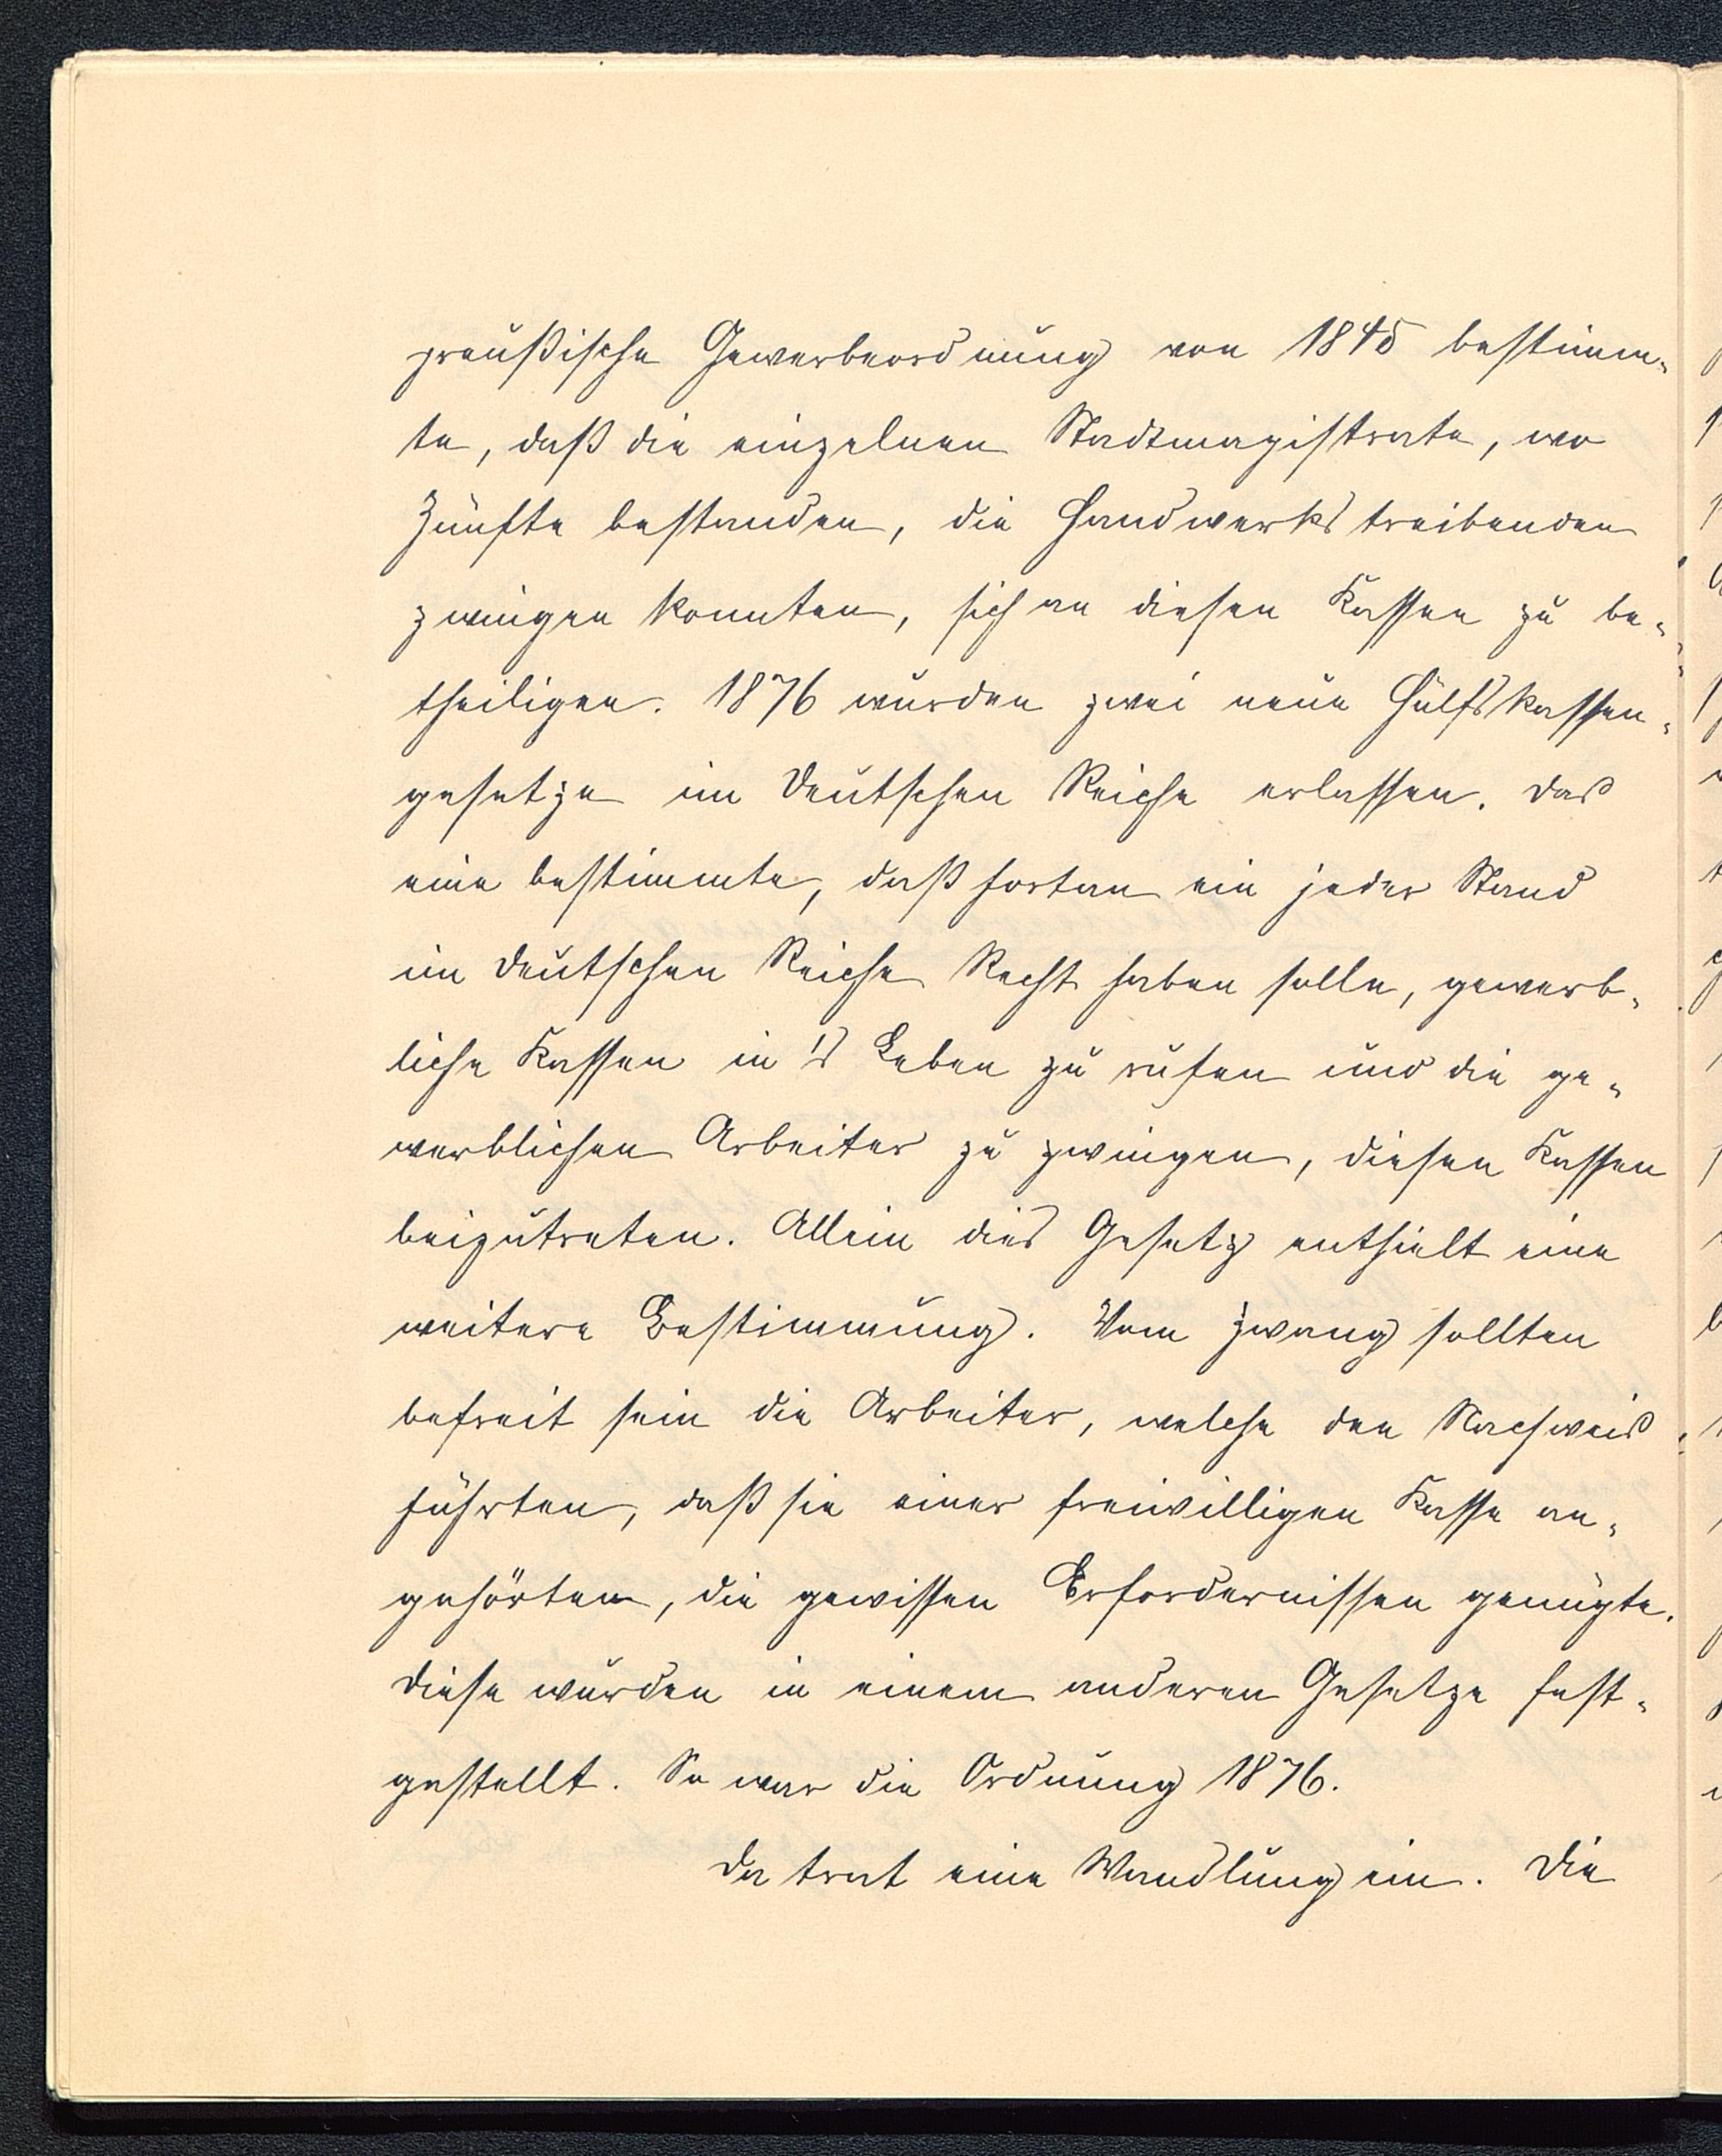 preußische Gewerbeordnung von 1845 bestimm-
te, daß die einzelnen Stadtmagistrate, wo
Zünfte bestanden, die Handwerkstreibenden
zwingen konnten, sich an diesen Kassen zu be-
theiligen. 1876 wurden zwei neue Hülfskassen-
gesetze im Deutschen Reiche erlassen. Das
eine bestimmte, daß fortan ein jeder Stand
im Deutschen Reiche Recht haben solle, gewerb-
liche Kassen in's Leben zu rufen und die ge-
werblichen Arbeiter zu zwingen, diesen Kassen
beizutreten. Allein dies Gesetz enthielt eine
weitere Bestimmung. Vom Zwang sollten
befreit sein die Arbeiter, welche den Nachweis
führten, daß sie einer freiwilligen Kasse an-
gehörten, die gewissen Erfordernissen genügte.
Diese wurden in einem anderen Gesetze fest-
gestellt. So war die Ordnung 1876.
Da trat eine Wandlung ein. Die